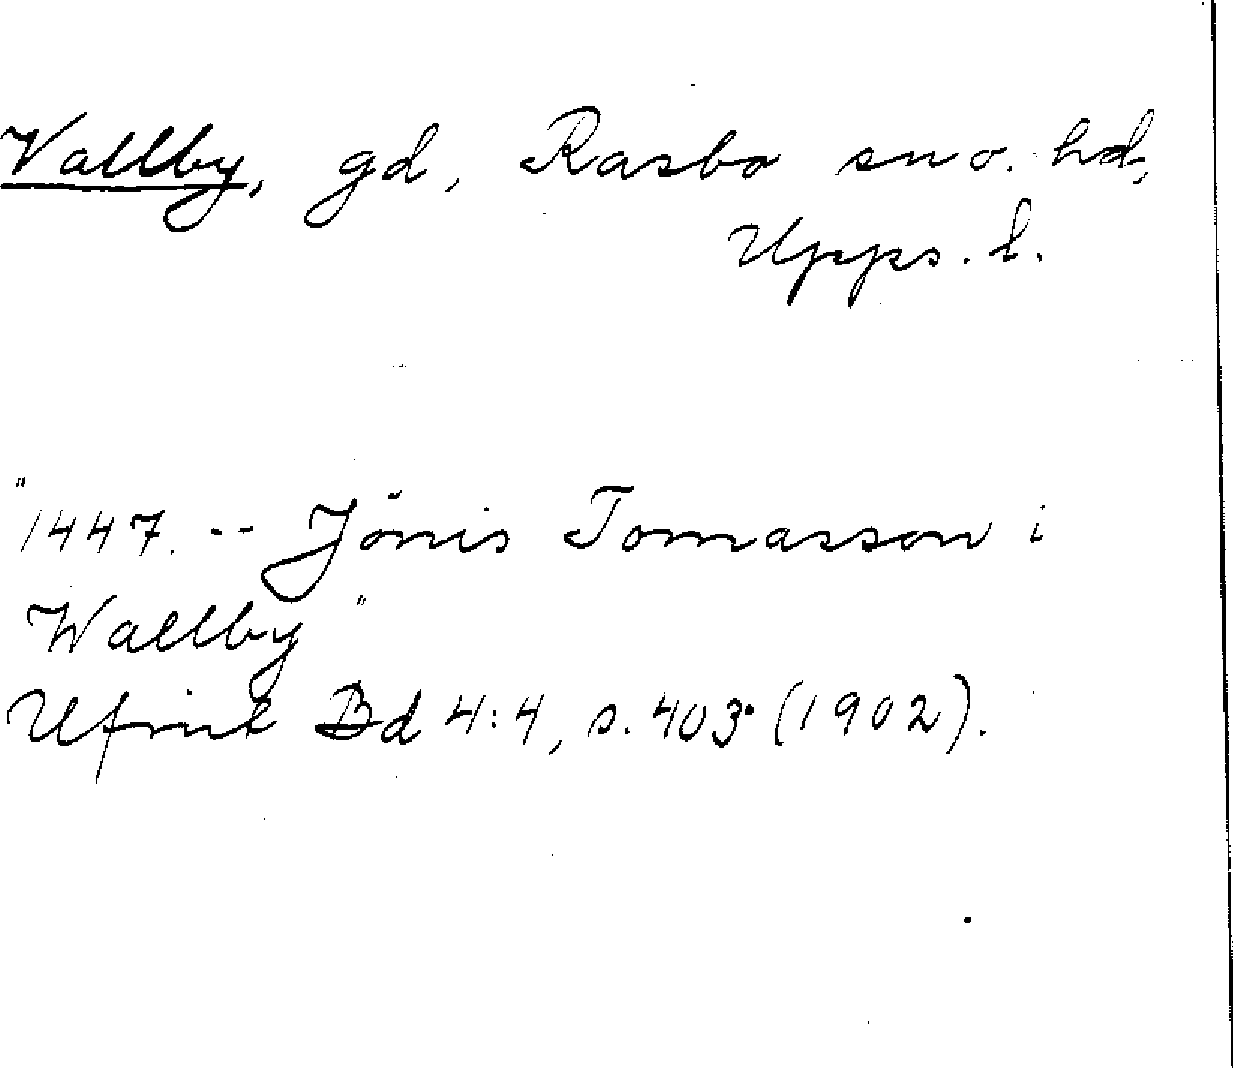 Vallby, gd, Rasbo sn o. hd,
Upps. l.
"1447. -- Jönis Tomasson i
Wallby"
Ufmt Bd 4:4, s. 403 (1902).